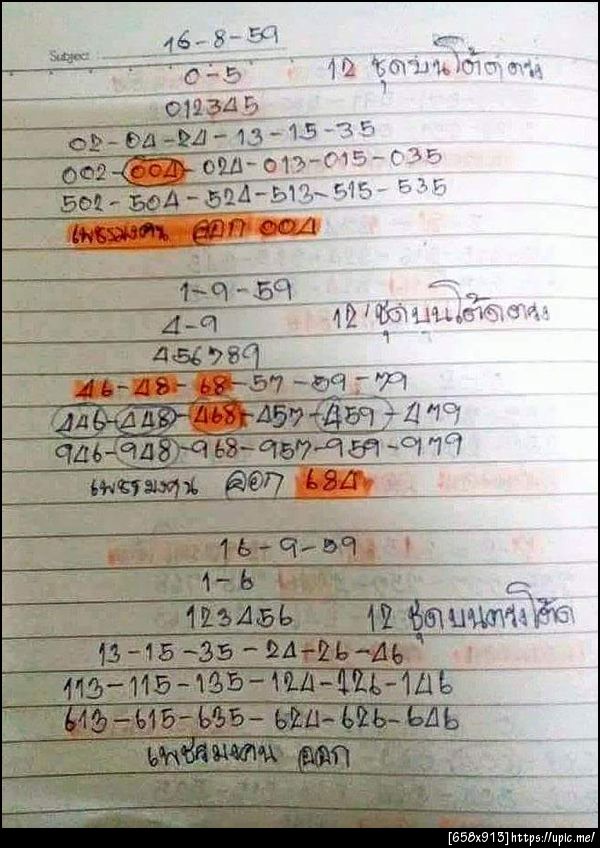 16-8-59
Subject
0-5 12 ชุดบนโต๊ดตรง
012345
02-04-24-13-15-35
002-004-024-013-015-035
502-504-524-513-515-535
เพชรมงคน ออก 004
1-9-59
4-9 12 ชุดบนโต๊ดตรง
456789
46-48-68-57-59-79
446-448-468-457-459-479
946-948-968-957-959-979
เพชรมงคน ออก 684
16-9-59
1-6
123456 12 ชุดบนตรงโต๊ด
13-15-35-24-26-46
113-115-135-124-126-146
613-615-635-624-626-646
เพชรมงคน ออก
[658x913]https://upic.me/